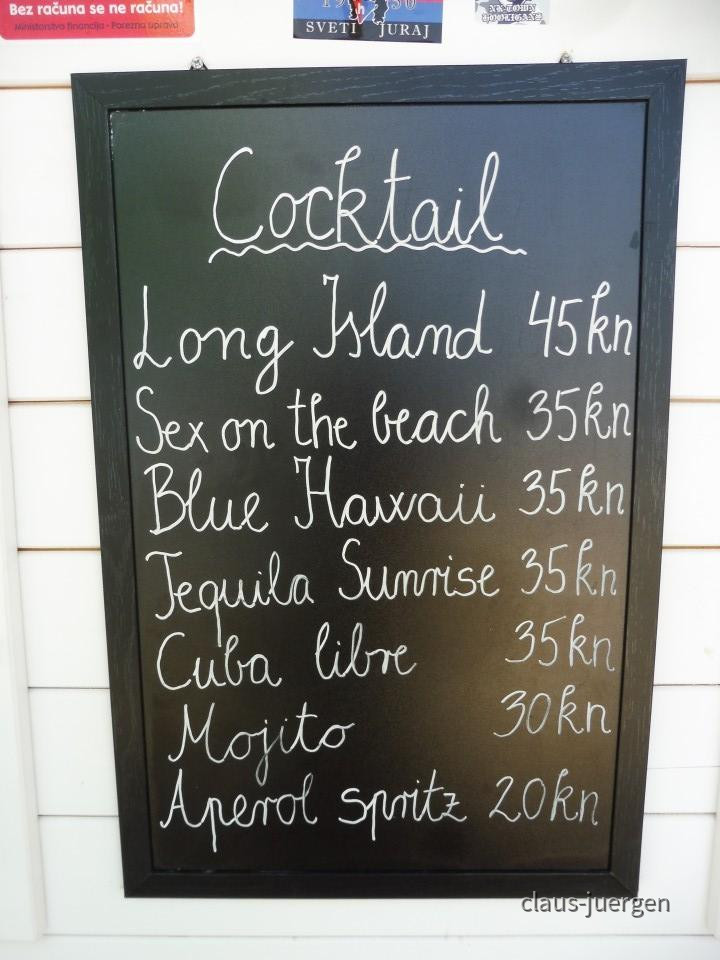 Bez računa se ne računa!
Ministarstvo financija - Porezna uprava
SVETI JURAJ
NK-TOWN
HOOLIGANS
Cocktail
Long Island 45kn
Sex on the beach 35kn
Blue Hawaii 35kn
Tequila Sunrise 35kn
Cuba libre 35kn
Mojito 30kn
Aperol spritz 20kn
claus-juergen